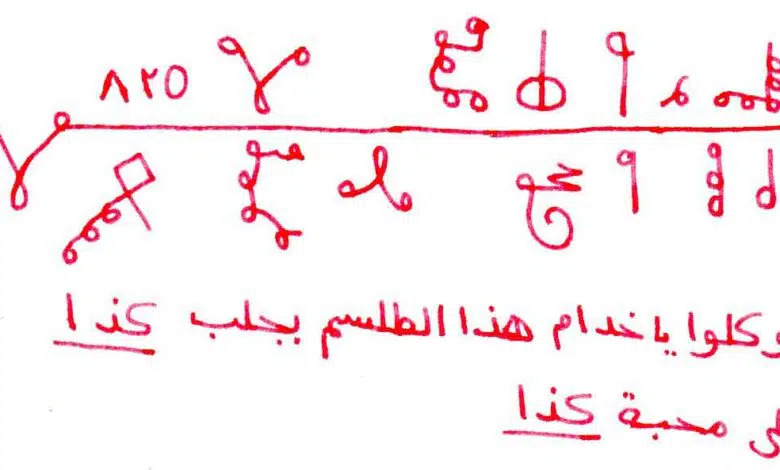 ٨٢٥
وكلوا يا خدام هذا الطلسم بجلب كذا
محبة كذا